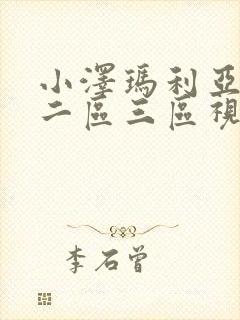 小澤瑪利亞
二區三區視
李石曾